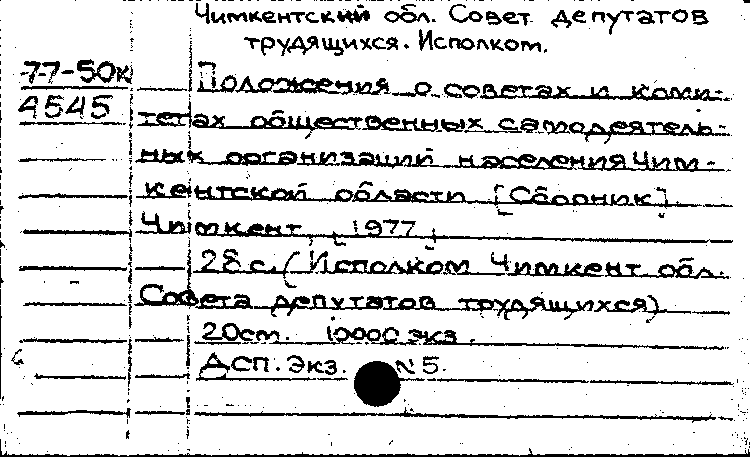 Чимкентский обл. Совет депутатов
трудящихся. Исполком.
77-50к
4545
Положения о советах и коми-
тетах общественных самодеятель-
ных организаций населения Чим-
кентской области [Сборник].
Чимкент, [1977]
28 с. (Исполком Чимкент обл.
Совета депутатов трудящихся)
20см. 10000 экз.
ДСП. Экз. N5.